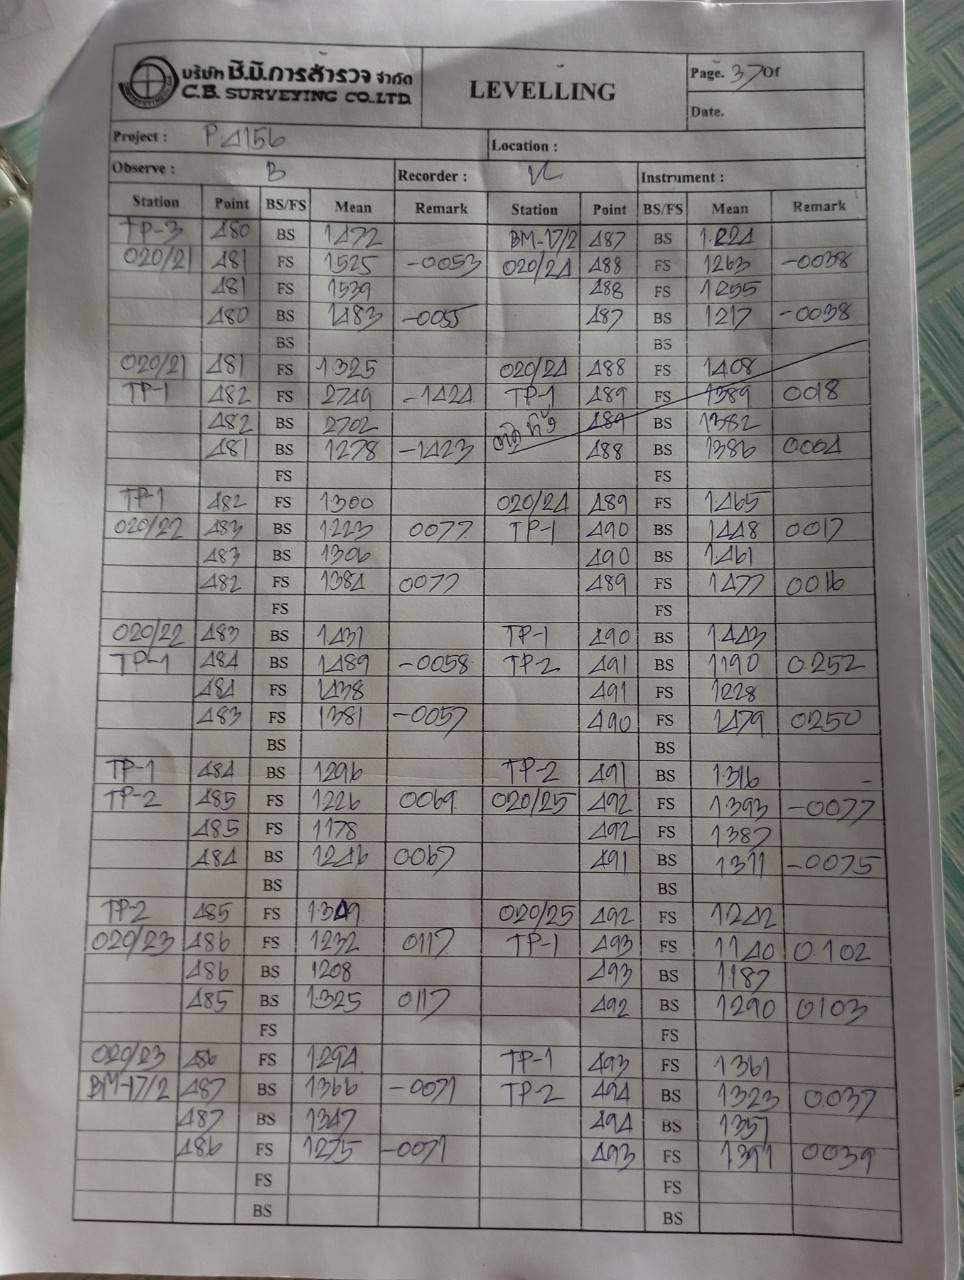 บริษัท ซี.บี.การสำรวจ จำกัด
C.B. SURVEYING CO.,LTD.
LEVELLING
Page. 37 Of
Date.
Project : P.4156
Location :
Observe : B
Recorder :
Instrument :
Station Point BS/FS Mean Remark Station Point BS/FS Mean Remark
TP-3 480 BS 1472 BM-17/2 487 BS 1.224
020/21 481 FS 1525 -0053 020/24 488 FS 1263 -0038
481 FS 1539 488 FS 1255
480 BS 1483 -0055 487 BS 1217 -0038
BS BS
020/21 481 FS 1.325 020/24 488 FS 1408
TP-1 482 FS 2749 -1424 TP-1 489 FS 1389 0018
482 BS 2702 489 BS 1382
481 BS 1278 -1423 488 BS 1386 0004
FS FS
TP-1 482 FS 1300 020/24 489 FS 1.465
020/22 483 BS 1223 0077 TP-1 490 BS 1448 0017
483 BS 1306 490 BS 1.461
482 FS 1384 0077 489 FS 1477 0016
FS FS
020/22 483 BS 1431 TP-1 490 BS 1443
TP-1 484 BS 1489 -0058 TP-2 491 BS 1190 0.252
484 FS 1438 491 FS 1228
483 FS 1381 -0057 490 FS 1479 0250
BS BS
TP-1 484 BS 1296 TP-2 491 BS 1.316
TP-2 485 FS 1226 0069 020/25 492 FS 1.393 -0077
485 FS 1178 492 FS 1387
484 BS 1246 0067 491 BS 1311 -0075
BS BS
TP-2 485 FS 1.349 020/25 492 FS 1242
020/23 486 FS 1232 0117 TP-1 493 FS 1140 0.102
486 BS 1208 493 BS 1187
485 BS 1.325 0117 492 BS 1290 0103
FS FS
020/23 486 FS 1294 TP-1 493 FS 1361
BM-17/2 487 BS 1366 -0071 TP-2 494 BS 1323 0.037
487 BS 1347 494 BS 1351
486 FS 1275 -0071 493 FS 1391 0039
FS FS
BS BS